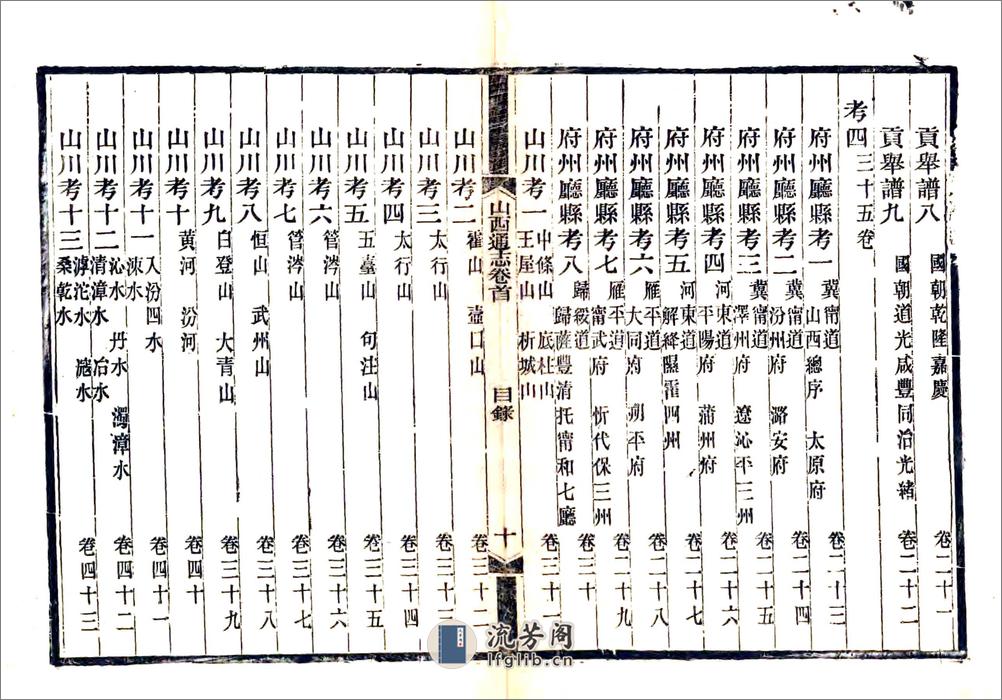 貢舉譜八 國朝乾隆嘉慶 卷二十一
貢舉譜九 國朝道光咸豐同治光緒 卷二十二
考四 三十五卷
府州廳縣考一 冀甯道 山西總序 太原府 卷二十三
府州廳縣考二 冀甯道 汾州府 潞安府 卷二十四
府州廳縣考三 冀甯道 澤州府 遼沁平三州 卷二十五
府州廳縣考四 河東道 平陽府 蒲州府 卷二十六
府州廳縣考五 河東道 解絳隰霍四州 卷二十七
府州廳縣考六 雁平道 大同府 朔平府 卷二十八
府州廳縣考七 雁平道 甯武府 忻代保三州 卷二十九
府州廳縣考八 歸綏道 歸薩豐清托甯和七廳 卷三十
山川考一 中條山 底柱山 王屋山 析城山 卷三十一
山西通志卷首 目錄 十
山川考二 霍山 壺口山 卷三十二
山川考三 太行山 卷三十三
山川考四 太行山 卷三十四
山川考五 五臺山 句注山 卷三十五
山川考六 管涔 卷三十六
山川考七 管涔 卷三十七
山川考八 恒山 武州山 卷三十八
山川考九 白登山 大青山 卷三十九
山川考十 黃河 汾河 卷四十
山川考十一 入汾四水 涑水 卷四十一
山川考十二 沁水 丹水 濁漳水 清漳水 冶水 卷四十二
山川考十三 滹沱水 滱水 桑乾水 卷四十三
流芳阁
lfglib.cn